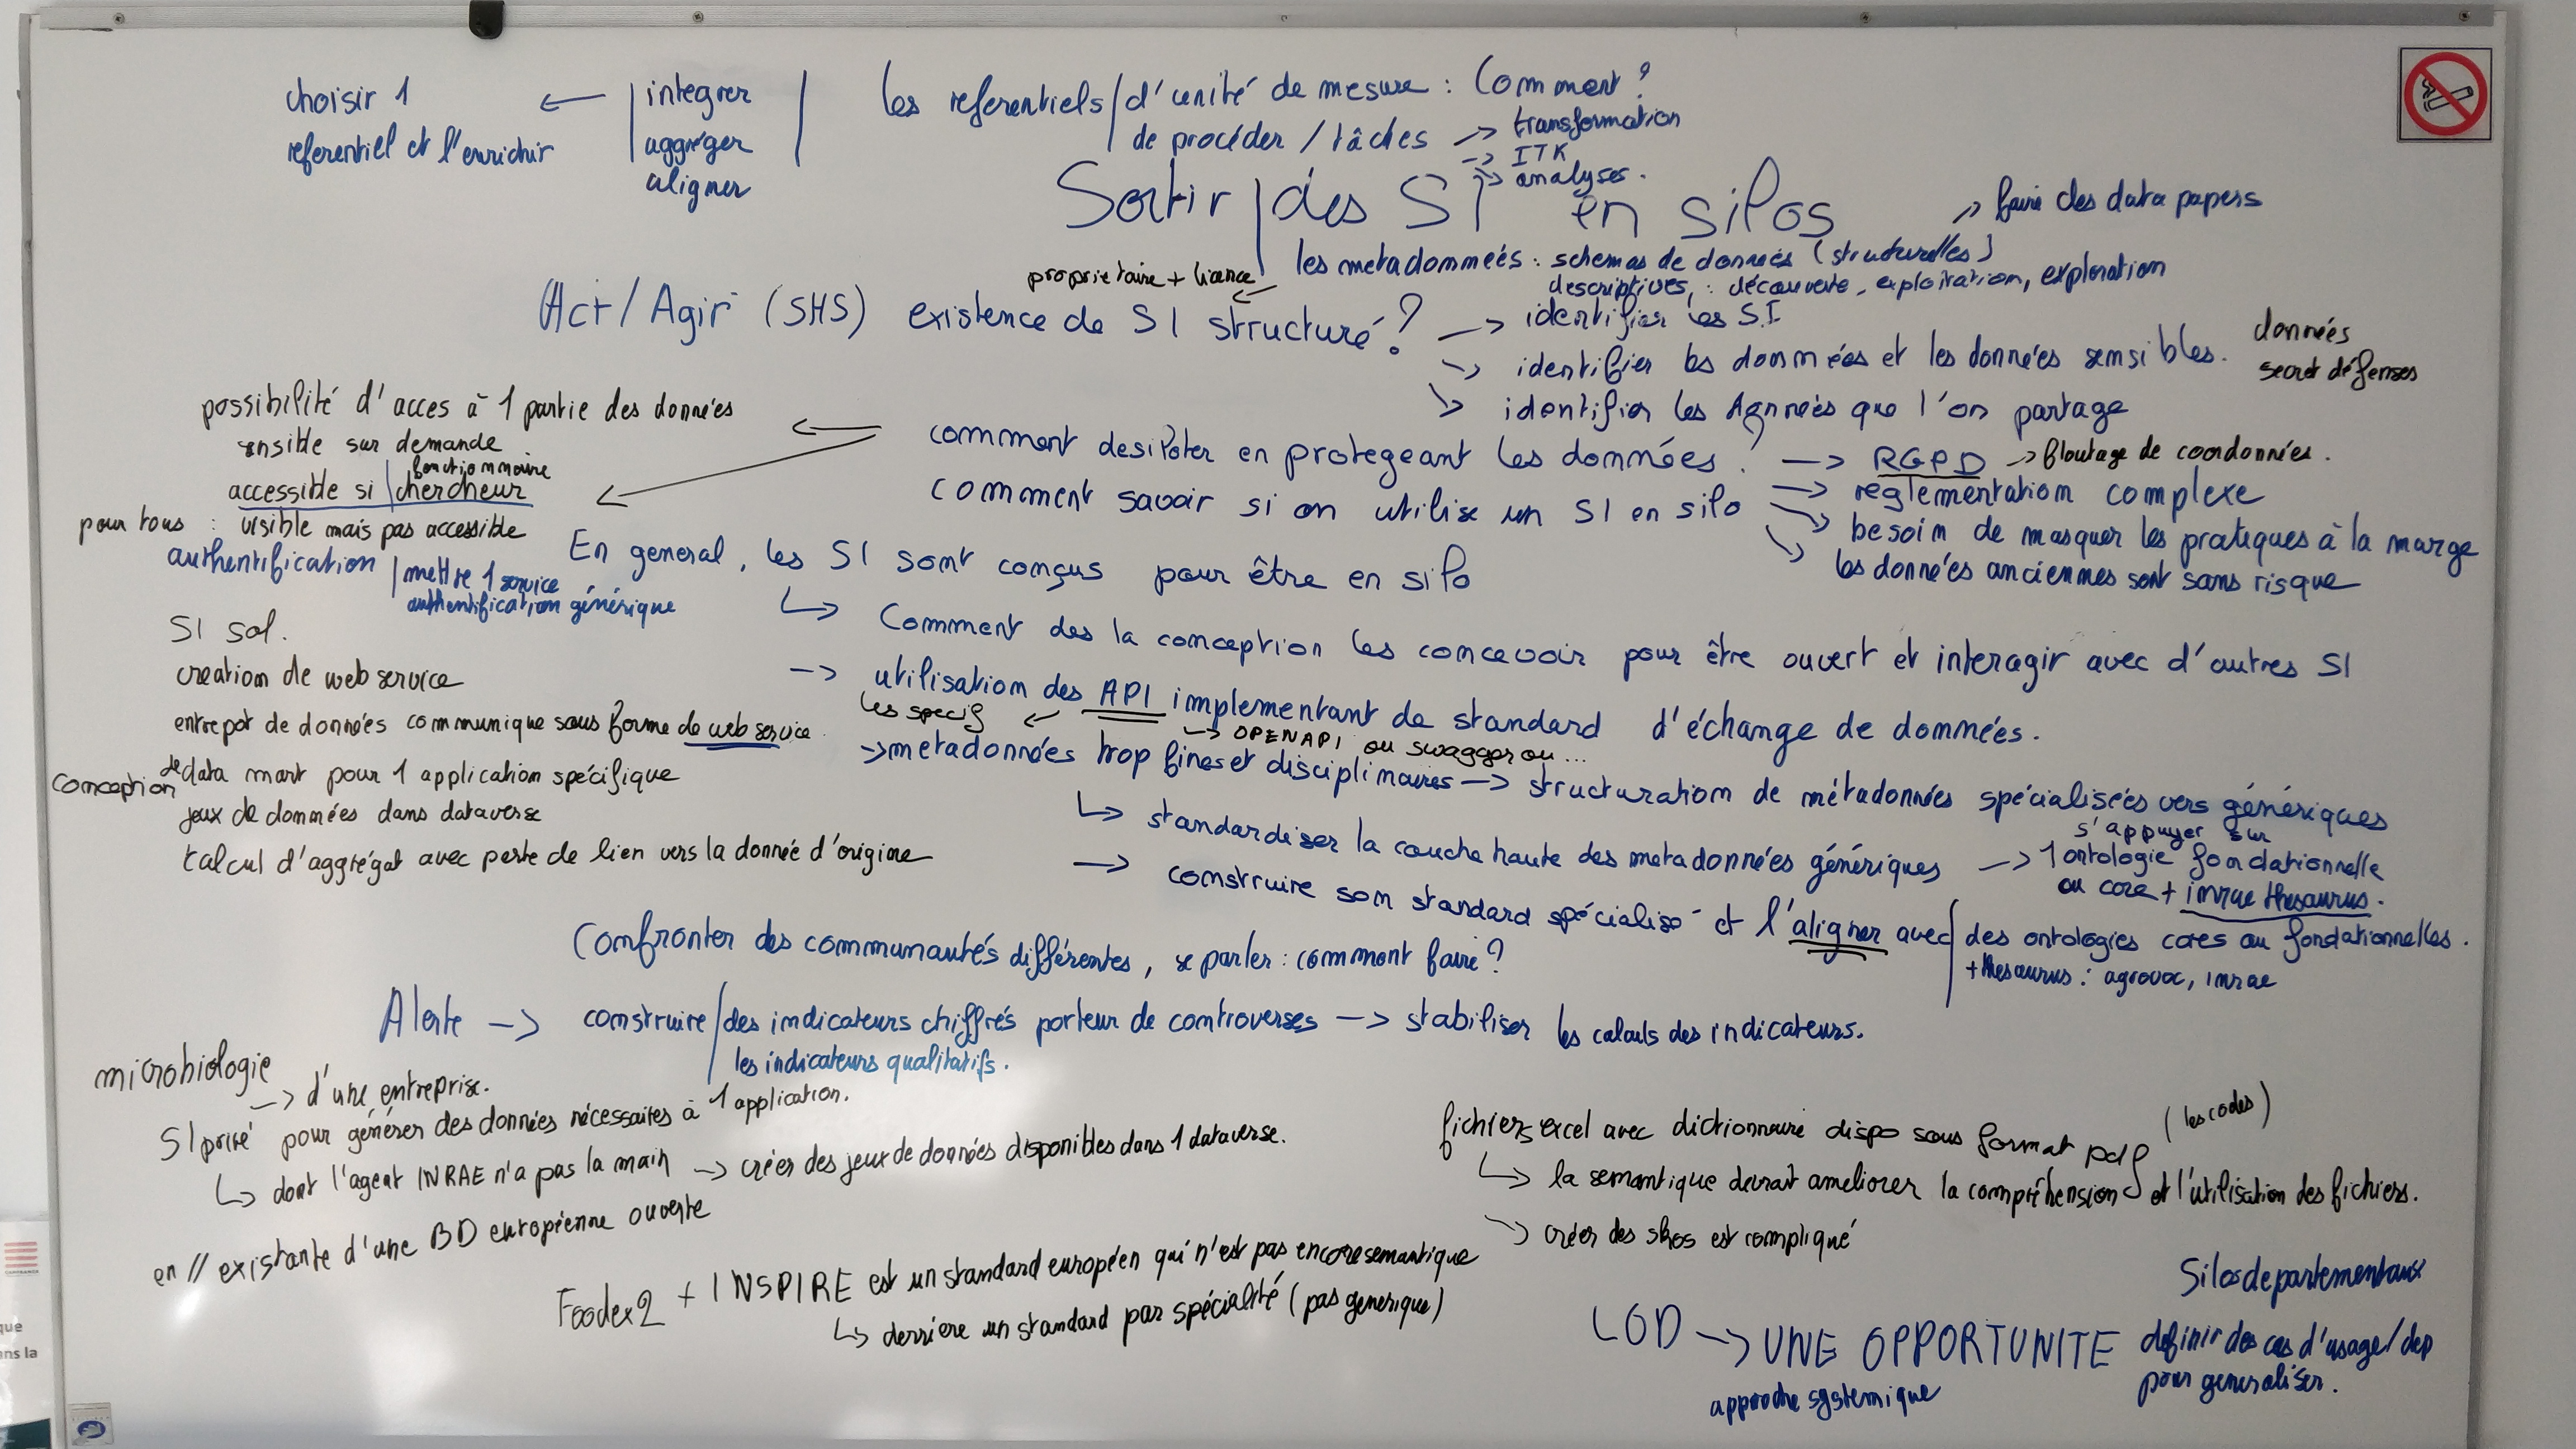 choisir 1
referentiel et l'enrichir
←
integrer
aggréger
aligner
les referentiels / d'unité de mesure : Comment ?
de procéder / tâches → transformation
→ ITK
→ analyses.
Sortir des SI en silos
→ faire des data papers
les metadonnées : schemas de données (structurelles)
descriptives, : découverte, exploitation, exploration
proprietaire + licence ←
Act / Agir (SHS) existence de SI structuré ?
→ identifier les S.I
→ identifier les données et les données sensibles.
données
secret défenses
→ identifier les données que l'on partage
possibilité d'acces à 1 partie des données
sensible sur demande
accessible si | fonctionnaire
chercheur
pour tous : visible mais pas accessible
authentification | mettre 1 service
authentification générique
comment desiloter en protegeant les données ? → RGPD → floutage de coordonnées.
comment savoir si on utilise un SI en silo
→ réglementation complexe
→ besoin de masquer les pratiques à la marge
→ les données anciennes sont sans risque
En general, les SI sont conçus pour être en silo
↳ Comment des la conception les concevoir pour être ouvert et interagir avec d'autres SI
→ utilisation des API implementant de standard d'échange de données.
les specif ←
→ OPENAPI ou swagger ou ...
SI sol.
creation de web service
entrepot de données communique sous forme de web service
conception de data mart pour 1 application spécifique
jeux de données dans dataverse
calcul d'aggrégat avec perte de lien vers la donnée d'origine
→ metadonnées trop fines et disciplinaires → structuration de métadonnées spécialisées vers génériques
↳ standardiser la couche haute des metadonnées génériques → s'appuyer sur
1 ontologie fondationnelle
ou core + inrae thesaurus.
→ construire son standard spécialisé et l'aligner avec | des ontologies cores ou fondationnelles.
+ thesaurus : agrovoc, inrae
Confronter des communautés différentes, se parler : comment faire ?
Alerte → construire / des indicateurs chiffrés porteur de controverses → stabiliser les calculs des indicateurs.
les indicateurs qualitatifs.
microbiologie
→ d'une entreprise.
SI privé pour générer des données nécessaires à 1 application.
↳ dont l'agent INRAE n'a pas la main → créer des jeux de données disponibles dans 1 dataverse.
en // existante d'une BD européenne ouverte
Foodex2 + INSPIRE est un standard européen qui n'est pas encore semantique
↳ derriere un standard par spécialité (pas generique)
fichiers excel avec dictionnaire dispo sous format pdf (les codes)
↳ la semantique devrait ameliorer la compréhension et l'utilisation des fichiers.
→ créer des skos est compliqué
LOD → UNE OPPORTUNITE
approche systemique
Silos departementaux
definir des cas d'usage / dep
pour generaliser.
que
ans la